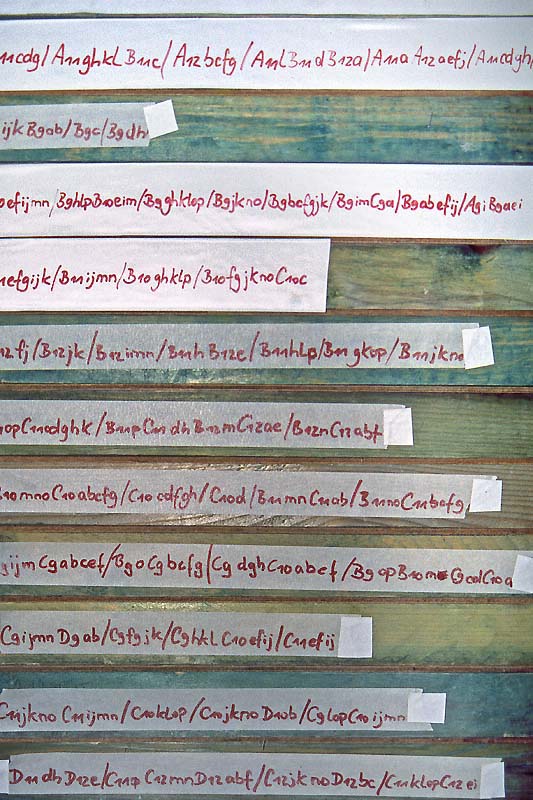 11cdg/A11ghklB11e/A12bcfg/A11lB11dB12a/A11aA12aefj/A11cdgh/
ijkB9ab/B9c/B9dh
oefijmn/B9hlpB10eim/B9ghklop/B9jkno/B9bcfgjk/B9imC9a/B9abefij/A9iB9aei
11efgijk/B11ijmn/B10ghklp/B10fgjknoC10c
12fj/B12jk/B12iimn/B11hB12e/B11hlp/B11gkop/B11jkno
10opC11cdghk/B11pC11dhB12mC12ae/B12nC12abf
B10mnoC10abcfg/C10cdfgh/C10d/B11mnC11ab/B11noC11bcfg
9ijmC9abcef/B9oC9bcfg/C9dghC10abef/B9opB10mC9cdC10a
C9ijmnD9ab/C9fgjk/C9hklC10efij/C11efij
C11jknoC11ijmn/C10klop/C10jknoD10b/C9lopC10ijmn
D11dhD12e/C11pC12mnD12abf/C12jknoD12bc/C11klopC12ei